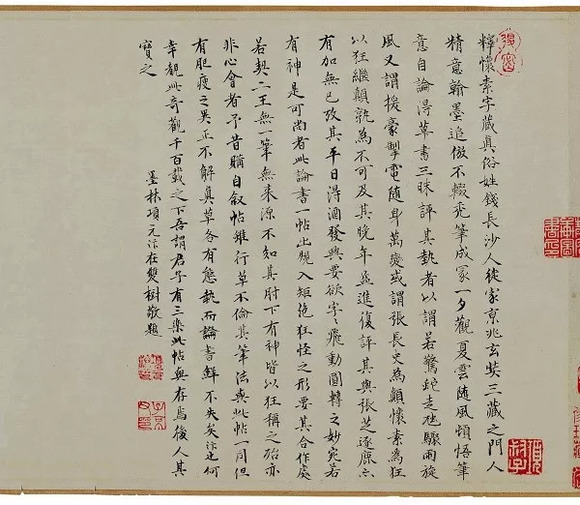 釋懷素字藏真俗姓錢長沙人徙家京兆玄奘三藏之門人
精意翰墨追倣不輟禿筆成冢一夕觀夏雲隨風頓悟筆
意自論得草書三昧評其執者以謂若驚蛇走虺驟雨旋
風又謂援豪掣電隨身萬變或謂張長史為顛懷素為狂
以狂繼顛孰為不可及其晚年益進復評其與張芝逐鹿亦
有加無已故其平日得酒發興要欲字飛動圓轉之妙宛若
有神是可尚者此論書一帖出規入矩絕狂怪之形要其合作處
若契二王無一筆無來源不知其肘下有神皆以狂稱之殆亦
非心會者予昔購自叙帖雖行草不倫其筆法與此帖一同但
有肥瘦之異正不解真草各有態執而論書鮮不失矣汴也何
幸覩此奇觀千百載之下吾謂君子有三樂此帖與存焉後人其
寶之
墨林項元汴在雙樹敬題
項叔子